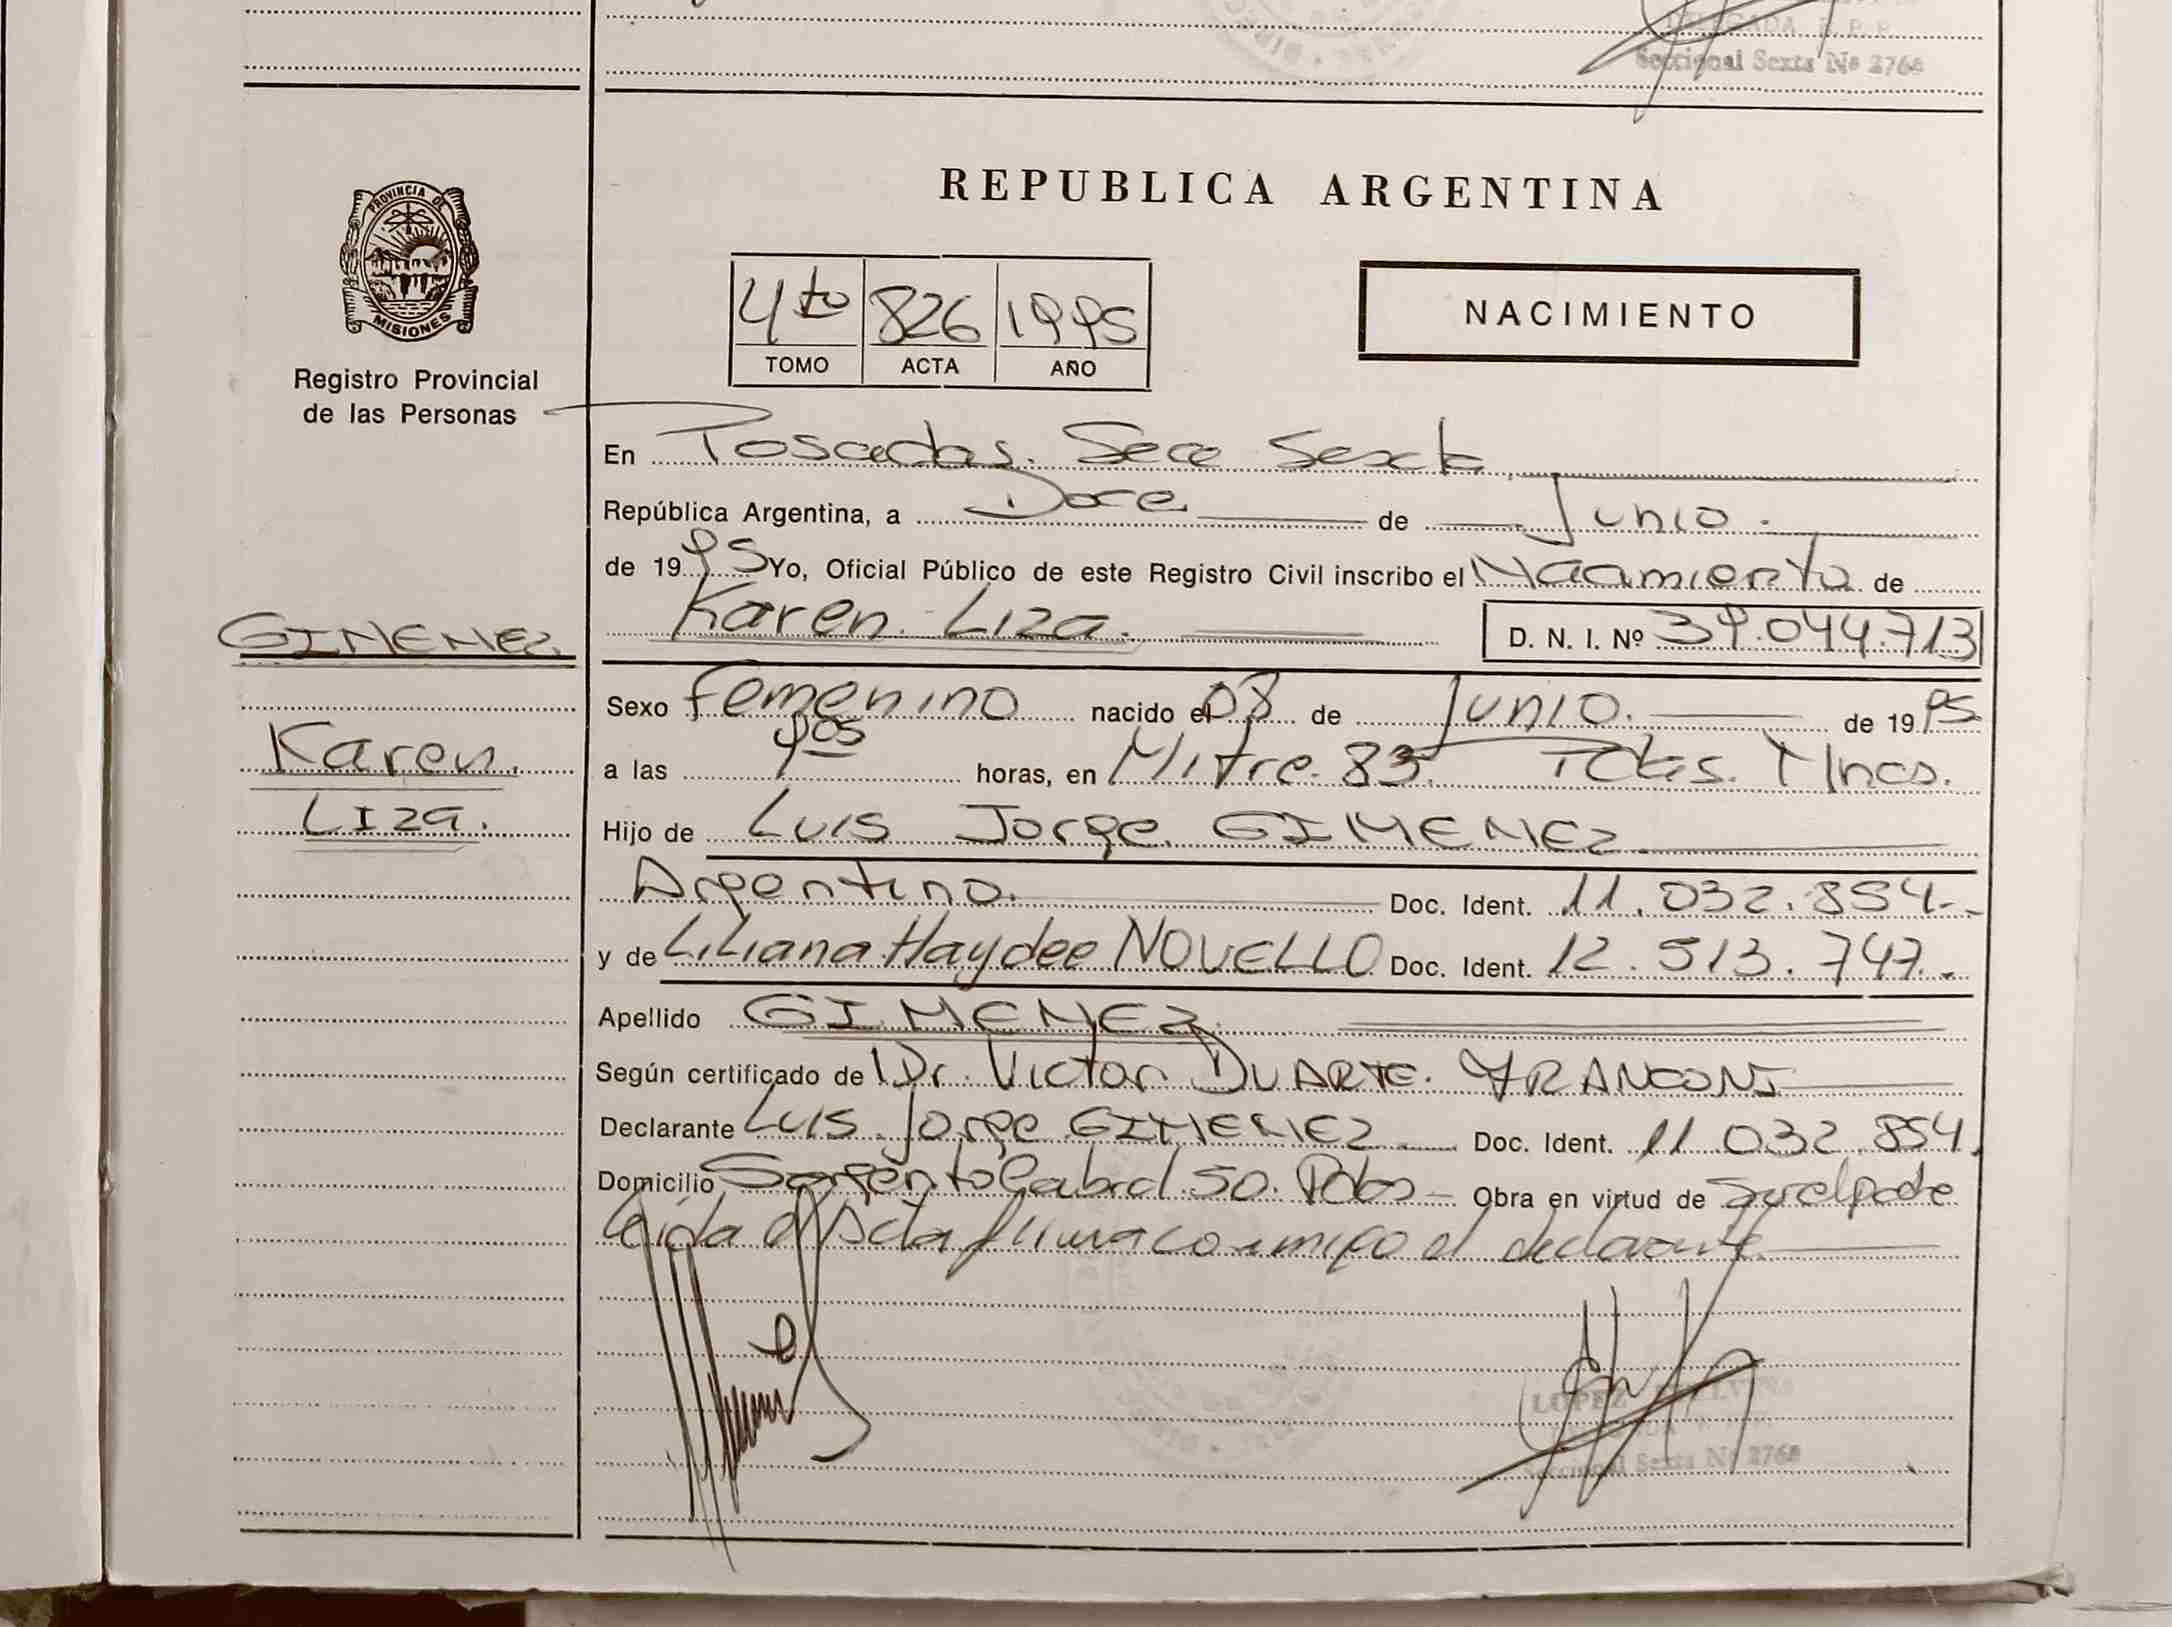 DELEGADA R. P. P.
Seccional Sexta Nº 2768
PROVINCIA DE
MISIONES
Registro Provincial
de las Personas
REPUBLICA ARGENTINA
4to 826 1995
TOMO ACTA AÑO
NACIMIENTO
En Posadas. Secc Sexta
República Argentina, a Doce de Junio.
de 1995 Yo, Oficial Público de este Registro Civil inscribo el Nacimiento de
Karen Liza. D. N. I. Nº 39.044.713
GIMENEZ
Karen
Liza.
Sexo Femenino nacido el 08 de Junio. de 1995
a las 9os horas, en Mitre. 83. Pdas. Mnes.
Hijo de Luis Jorge GIMENEZ
Argentino. Doc. Ident. 11.032.854.
y de Liliana Haydee NOVELLO Doc. Ident. 12.513.747.
Apellido GIMENEZ
Según certificado de Dr. Victor DUARTE.
Declarante Luis Jorge GIMENEZ Doc. Ident. 11.032.854.
Domicilio Sargento Cabral 50. Pdas Obra en virtud de
Leida el Acta firma conmigo el declarante
LOPEZ
Seccional Sexta Nº 2768